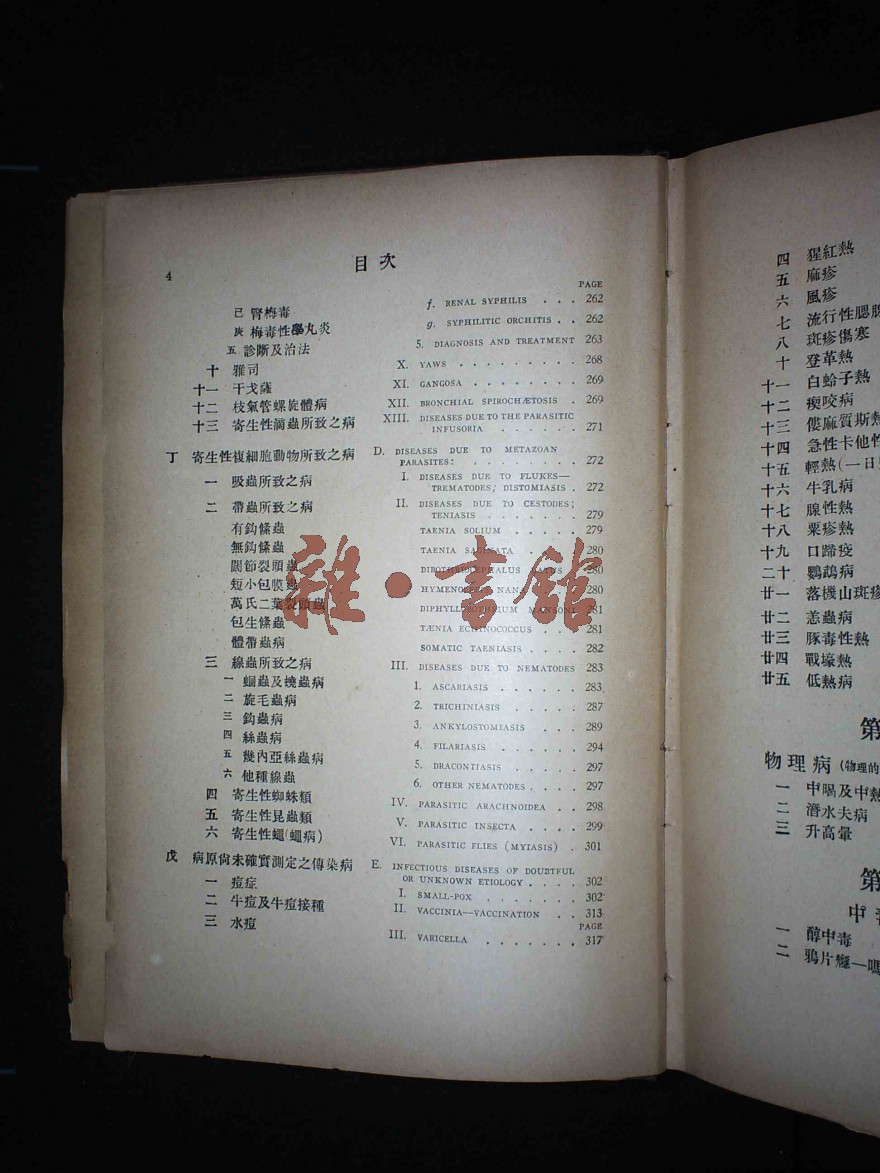 4
目次
PAGE
己 腎梅毒 f. RENAL SYPHILIS . . . 262
庚 梅毒性睾丸炎 g. SYPHILITIC ORCHITIS . . 262
五 診斷及治法 5. DIAGNOSIS AND TREATMENT 263
十 雅司 X. YAWS . . . . . . . . 268
十一 干戈薩 XI. GANGOSA . . . . . . . . 269
十二 枝氣管螺旋體病 XII. BRONCHIAL SPIROCHÆTOSIS . 269
十三 寄生性滴蟲所致之病 XIII. DISEASES DUE TO THE PARASITIC
INFUSORIA . . . . . . 271
丁 寄生性複細胞動物所致之病 D. DISEASES DUE TO METAZOAN
PARASITES: . . . . . . . 272
一 吸蟲所致之病 I. DISEASES DUE TO FLUKES—
TREMATODES; DISTOMIASIS . 272
二 帶蟲所致之病 II. DISEASES DUE TO CESTODES;
TENIASIS . . . . . . . 279
有鈎絛蟲 TAENIA SOLIUM . . . . . 279
無鈎絛蟲 TAENIA SAGINATA . . . . 280
闊節裂頭蟲 DIBOTHRIOCEPHALUS LATUS . 280
短小包膜蟲 HYMENOLEPIS NANA . . . 280
萬氏二葉裂頭蟲 DIPHYLLOBOTHRIUM MANSONI 281
包生絛蟲 TÆNIA ECHINOCOCCUS . . . 281
體帶蟲病 SOMATIC TAENIASIS . . . . 282
三 線蟲所致之病 III. DISEASES DUE TO NEMATODES 283
一 蛔蟲及蟯蟲病 1. ASCARIASIS . . . . . . 283
二 旋毛蟲病 2. TRICHINIASIS . . . . . 287
三 鈎蟲病 3. ANKYLOSTOMIASIS . . . 289
四 絲蟲病 4. FILARIASIS . . . . . . 294
五 幾內亞絲蟲病 5. DRACONTIASIS . . . . . 297
六 他種線蟲 6. OTHER NEMATODES . . . . 297
四 寄生性蜘蛛類 IV. PARASITIC ARACHNOIDEA . . 298
五 寄生性昆蟲類 V. PARASITIC INSECTA . . . . 299
六 寄生性蠅(蠅病) VI. PARASITIC FLIES (MYIASIS) . 301
戊 病原尙未確實測定之傳染病 E. INFECTIOUS DISEASES OF DOUBTFUL
OR UNKNOWN ETIOLOGY . . . . 302
一 痘症 I. SMALL-POX . . . . . . . 302
二 牛痘及牛痘接種 II. VACCINIA—VACCINATION . . 313
PAGE
三 水痘 III. VARICELLA . . . . . . . 317
雜·書館
四 猩紅熱
五 麻疹
六 風疹
七 流行性腮腺
八 斑疹傷寒
十 登革熱
十一 白蛉子熱
十二 瘈咬病
十三 僂麻質斯熱
十四 急性卡他性
十五 輕熱(一日
十六 牛乳病
十七 腺性熱
十八 粟疹熱
十九 口蹄疫
二十 鸚鵡病
廿一 落機山斑疹
廿二 恙蟲病
廿三 豚毒性熱
廿四 戰壕熱
廿五 低熱病
第
物理病 (物理的
一 中暍及中熱
二 潛水夫病
三 升高暈
第
中毒
一 醇中毒
二 鴉片癮—嗎